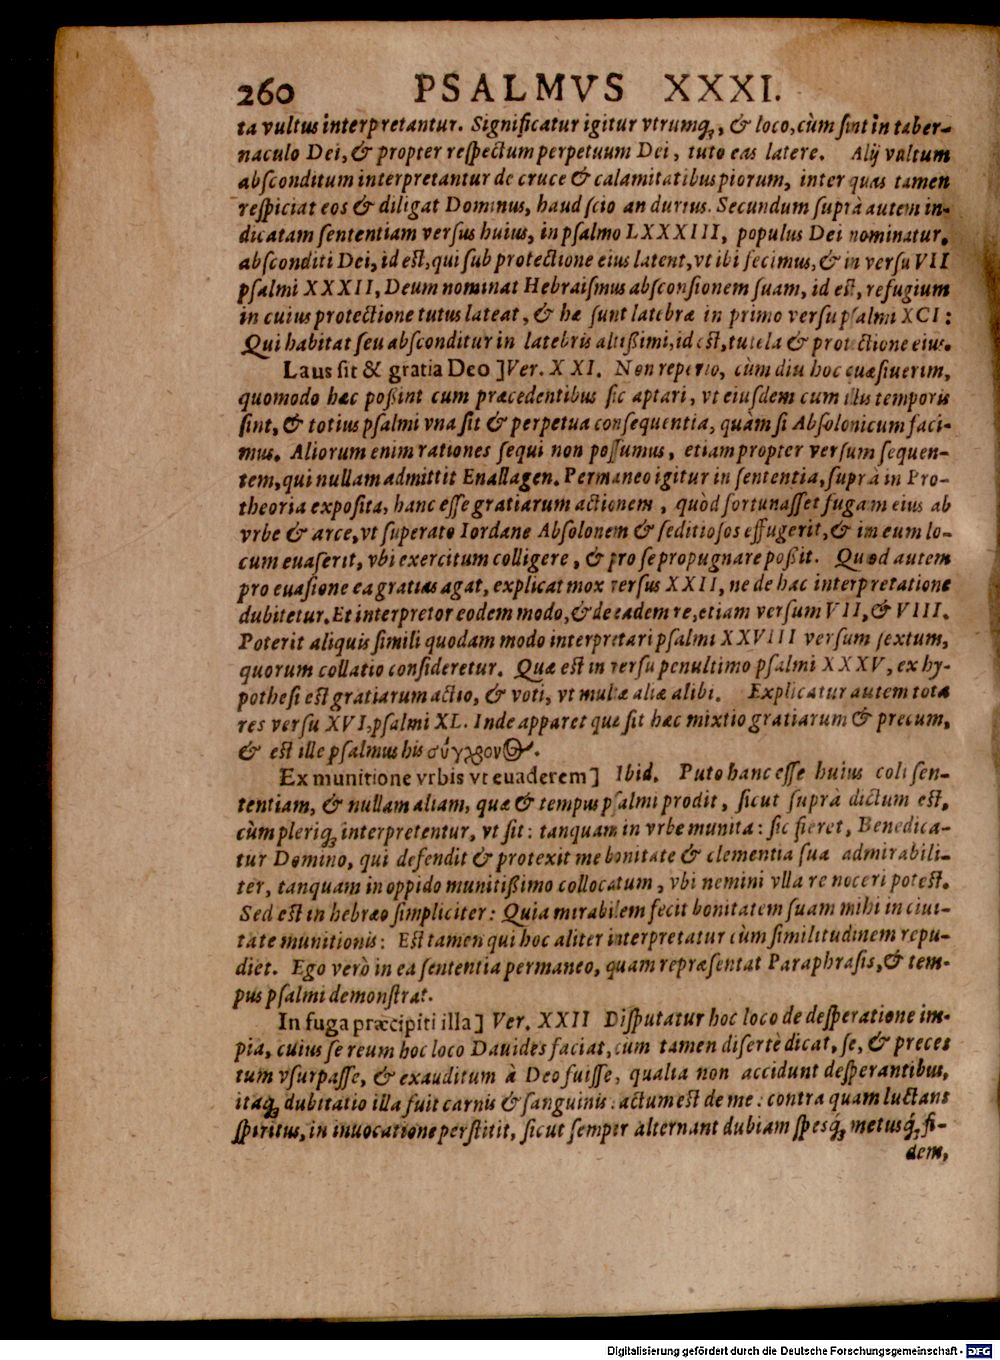 260 PSALMVS XXXI.
ta vultus interpretantur. Significatur igitur vtrumq́;, & loco, cùm sint in taber-
naculo Dei, & propter respectum perpetuum Dei, tuto eas latere. Alij vultum
absconditum interpretantur de cruce & calamitatibus piorum, inter quas tamen
respiciat eos & diligat Dominus, haud scio an durius. Secundum suprà autem in-
dicatam sententiam versus huius, in psalmo LXXXIII, populus Dei nominatur,
absconditi Dei, id est, qui sub protectione eius latent, vt ibi fecimus, & in versu VII
psalmi XXXII, Deum nominat Hebraismus absconsionem suam, id est, refugium
in cuius protectione tutus lateat, & hæ sunt latebræ in primo versu psalmi XCI:
Qui habitat seu absconditur in latebris altißimi, id est, tutela & protectione eius.
Laus sit & gratia Deo ] Ver. XXI. Non reperio, cùm diu hoc quæsiuerim,
quomodo hæc poßint cum præcedentibus sic aptari, vt eiusdem cum illis temporis
sint, & totius psalmi vna sit & perpetua consequentia, quàm si Absolonicum faci-
mus. Aliorum enim rationes sequi non possumus, etiam propter versum sequen-
tem, qui nullam admittit Enallagen. Permaneo igitur in sententia, suprà in Pro-
theoria exposita, hanc esse gratiarum actionem, quòd fortunasset fugam eius ab
vrbe & arce, vt superato Iordane Absolonem & seditiosos effugerit, & in eum lo-
cum euaserit, vbi exercitum colligere, & pro se propugnare poßit. Quod autem
pro euasione ea gratias agat, explicat mox versus XXII, ne de hac interpretatione
dubitetur. Et interpretor eodem modo, & de eadem re, etiam versum VII, & VIII.
Poterit aliquis simili quodam modo interpretari psalmi XXVIII versum sextum,
quorum collatio consideretur. Quæ est in versu penultimo psalmi XXXV, ex hy-
pothesi est gratiarum actio, & voti, vt multæ aliæ alibi. Explicatur autem tota
res versu XVI, psalmi XL. Inde apparet quæ sit hæc mixtio gratiarum & precum,
& est ille psalmus his σύγχρονος.
Ex munitione vrbis vt euaderem ] Ibid. Puto hanc esse huius coli sen-
tentiam, & nullam aliam, quæ & tempus psalmi prodit, sicut suprà dictum est,
cùm pleriq; interpretentur, vt sit: tanquam in vrbe munita: sic fieret, Benedica-
tur Domino, qui defendit & protexit me bonitate & clementia sua admirabili-
ter, tanquam in oppido munitißimo collocatum, vbi nemini vlla re noceri potest.
Sed est in hebræo simpliciter: Quia mirabilem fecit bonitatem suam mihi in ciui-
tate munitionis: Est tamen qui hoc aliter interpretatur cùm similitudinem repu-
diet. Ego verò in ea sententia permaneo, quam repræsentat Paraphrasis, & tem-
pus psalmi demonstrat.
In fuga præcipiti illa ] Ver. XXII Disputatur hoc loco de desperatione im-
pia, cuius se reum hoc loco Dauides faciat, cum tamen disertè dicat, se, & preces
tum vsurpasse, & exauditum à Deo fuisse, qualia non accidunt desperantibus,
itaq; dubitatio illa fuit carnis & sanguinis: actum est de me: contra quam luctans
spiritus, in inuocatione perstitit, sicut semper alternant dubiam spesq́; metusq́; fi-
dem,
Digitalisierung gefördert durch die Deutsche Forschungsgemeinschaft - DFG